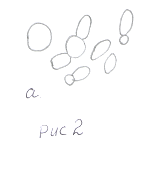 а
рис 2